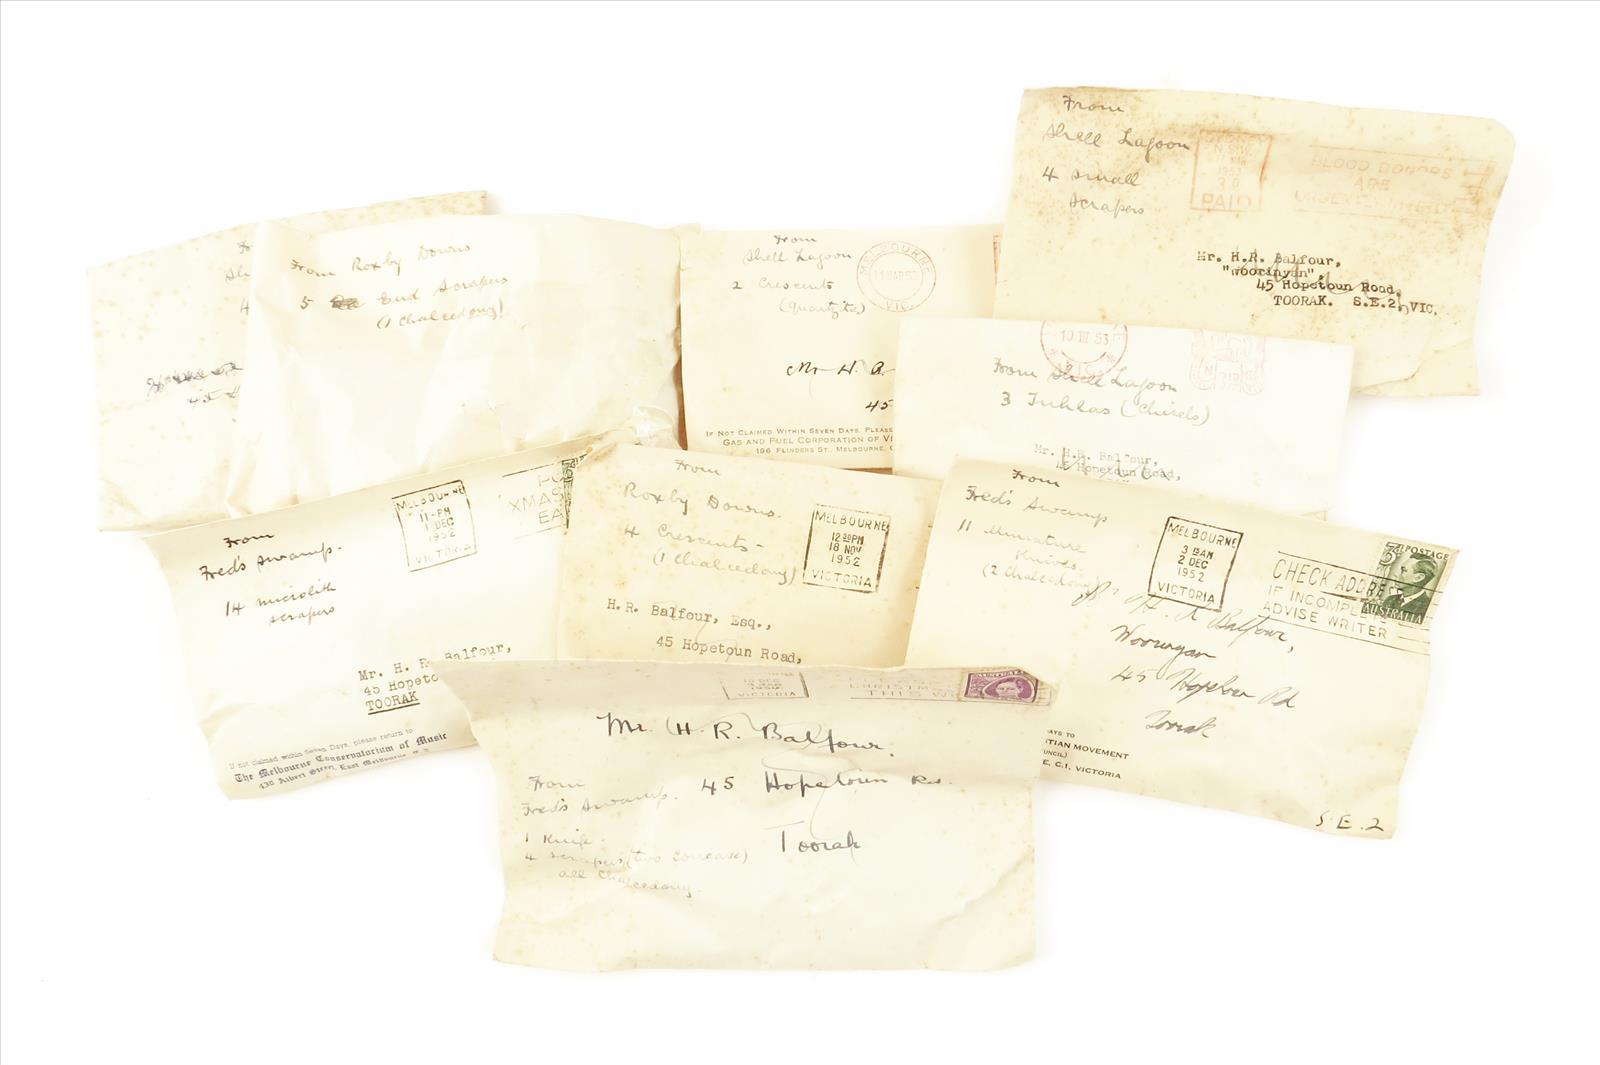 From
Shell Lagoon
4 small
scrapers
SYDNEY
N.S.W.
1953
3 D
PAID
BLOOD DONORS
ARE
URGENTLY NEEDED
Mr. H.R. Balfour,
"Woorinyan",
45 Hopetoun Road,
TOORAK. S.E.2, VIC.
Sh
4
45
From Roxby Downs
5 End Scrapers
(1 chalcedony)
From
Shell Lagoon
2 Crescents
(quartzite)
MELBOURNE
11 MAR 53
VIC.
Mr H. R.
45
IF NOT CLAIMED WITHIN SEVEN DAYS, PLEASE
GAS AND FUEL CORPORATION OF VI
196 FLINDERS ST., MELBOURNE, C
10 III 53
From Shell Lagoon
3 Tuhlas (Chisels)
Mr. H.R. Balfour,
45 Hopetoun Road,
From
Fred's Swamp.
14 microlith
scrapers
MELBOURNE
11-PM
1 DEC
1952
VICTORIA
PO
XMAS
EA
Mr. H. R. Balfour,
45 Hopeto
TOORAK
If not claimed within Seven Days, please return to
The Melbourne Conservatorium of Music
430 Albert Street, East Melbourne
From
Roxby Downs.
4 Crescents-
(1 chalcedony)
MELBOURNE
12 30PM
18 NOV
1952
VICTORIA
H.R. Balfour, Esq.,
45 Hopetoun Road,
From
Fred's Swamp
11 Miniature
Knives.
(2 Chalcedony)
MELBOURNE
3 15AM
2 DEC
1952
VICTORIA
CHECK ADDRE
IF INCOMPLETE
ADVISE WRITER
POSTAGE
AUSTRALIA
H. R Balfour,
Woorinyan
45 Hopetoun Rd
Toorak
S.E.2
AYS TO
TIAN MOVEMENT
UNCIL)
E, C.1, VICTORIA
VICTORIA
CHRISTM
THIS W
AUSTRALIA
Mr. H. R. Balfour.
45 Hopetoun Rd.
Toorak
From
Fred's Swamp.
1 Knife.
4 scrapers (two concave)
all chalcedony.